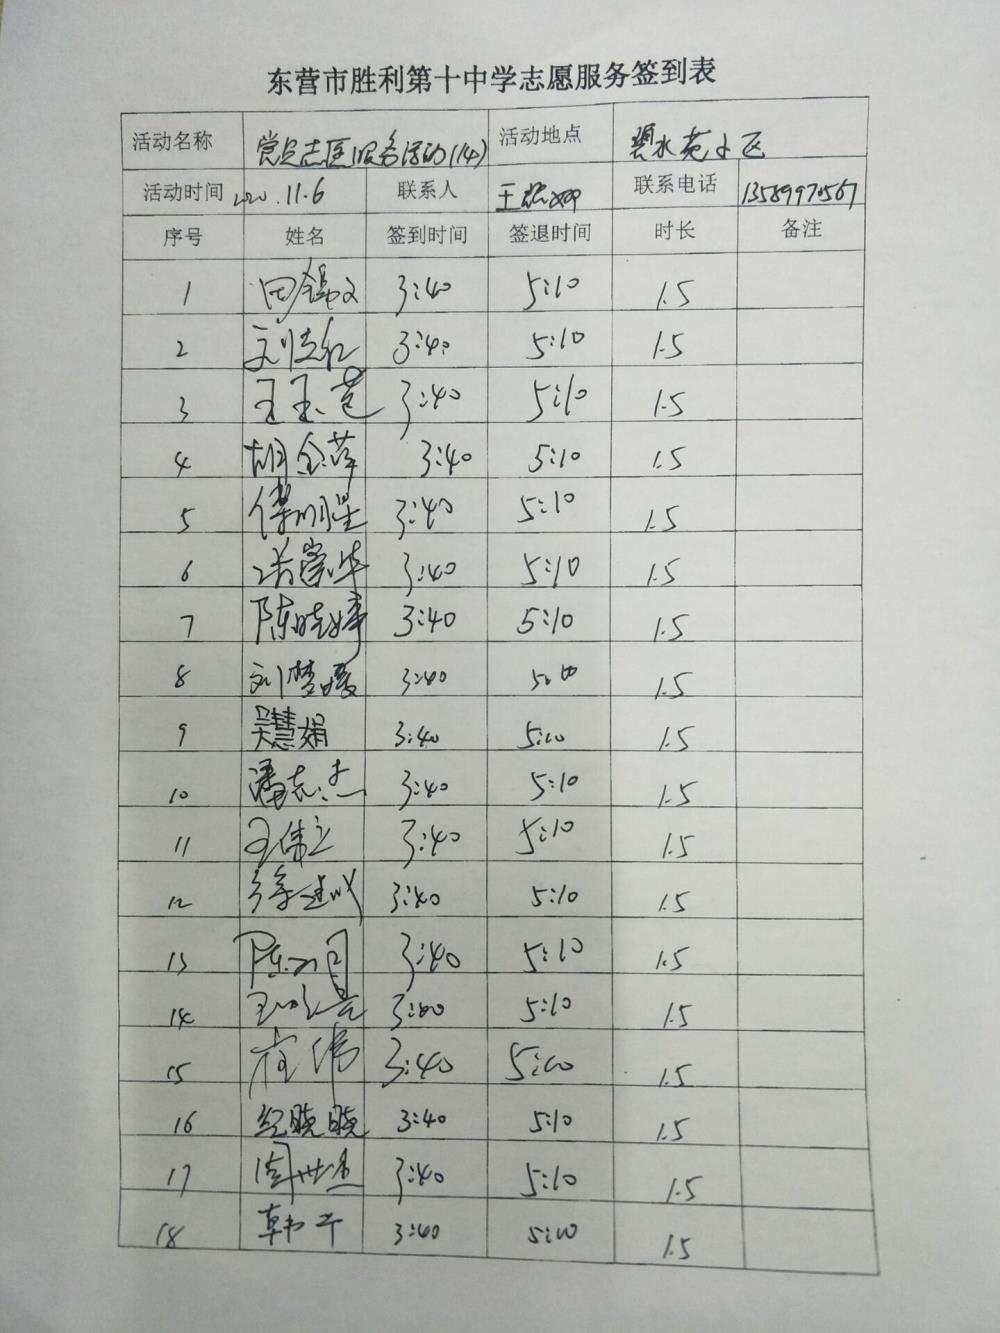 东营市胜利第十中学志愿服务签到表
活动名称 党员志愿服务活动(14) 活动地点 碧水苑小区
活动时间 2020.11.6 联系人 王 联系电话 13589970567
序号 姓名 签到时间 签退时间 时长 备注
1 田 文 3:40 5:10 1.5
2 刘志红 3:40 5:10 1.5
3 王玉莲 3:40 5:10 1.5
4 胡金萍 3:40 5:10 1.5
5 傅明星 3:40 5:10 1.5
6 华 3:40 5:10 1.5
7 陈晓婷 3:40 5:10 1.5
8 刘梦媛 3:40 5:10 1.5
9 吴慧娟 3:40 5:10 1.5
10 潘志杰 3:40 5:10 1.5
11 王伟立 3:40 5:10 1.5
12 徐建 3:40 5:10 1.5
13 陈 3:40 5:10 1.5
14 王 3:40 5:10 1.5
15 伟 3:40 5:10 1.5
16 纪晓晓 3:40 5:10 1.5
17 周世 3:40 5:10 1.5
18 韩 3:40 5:10 1.5